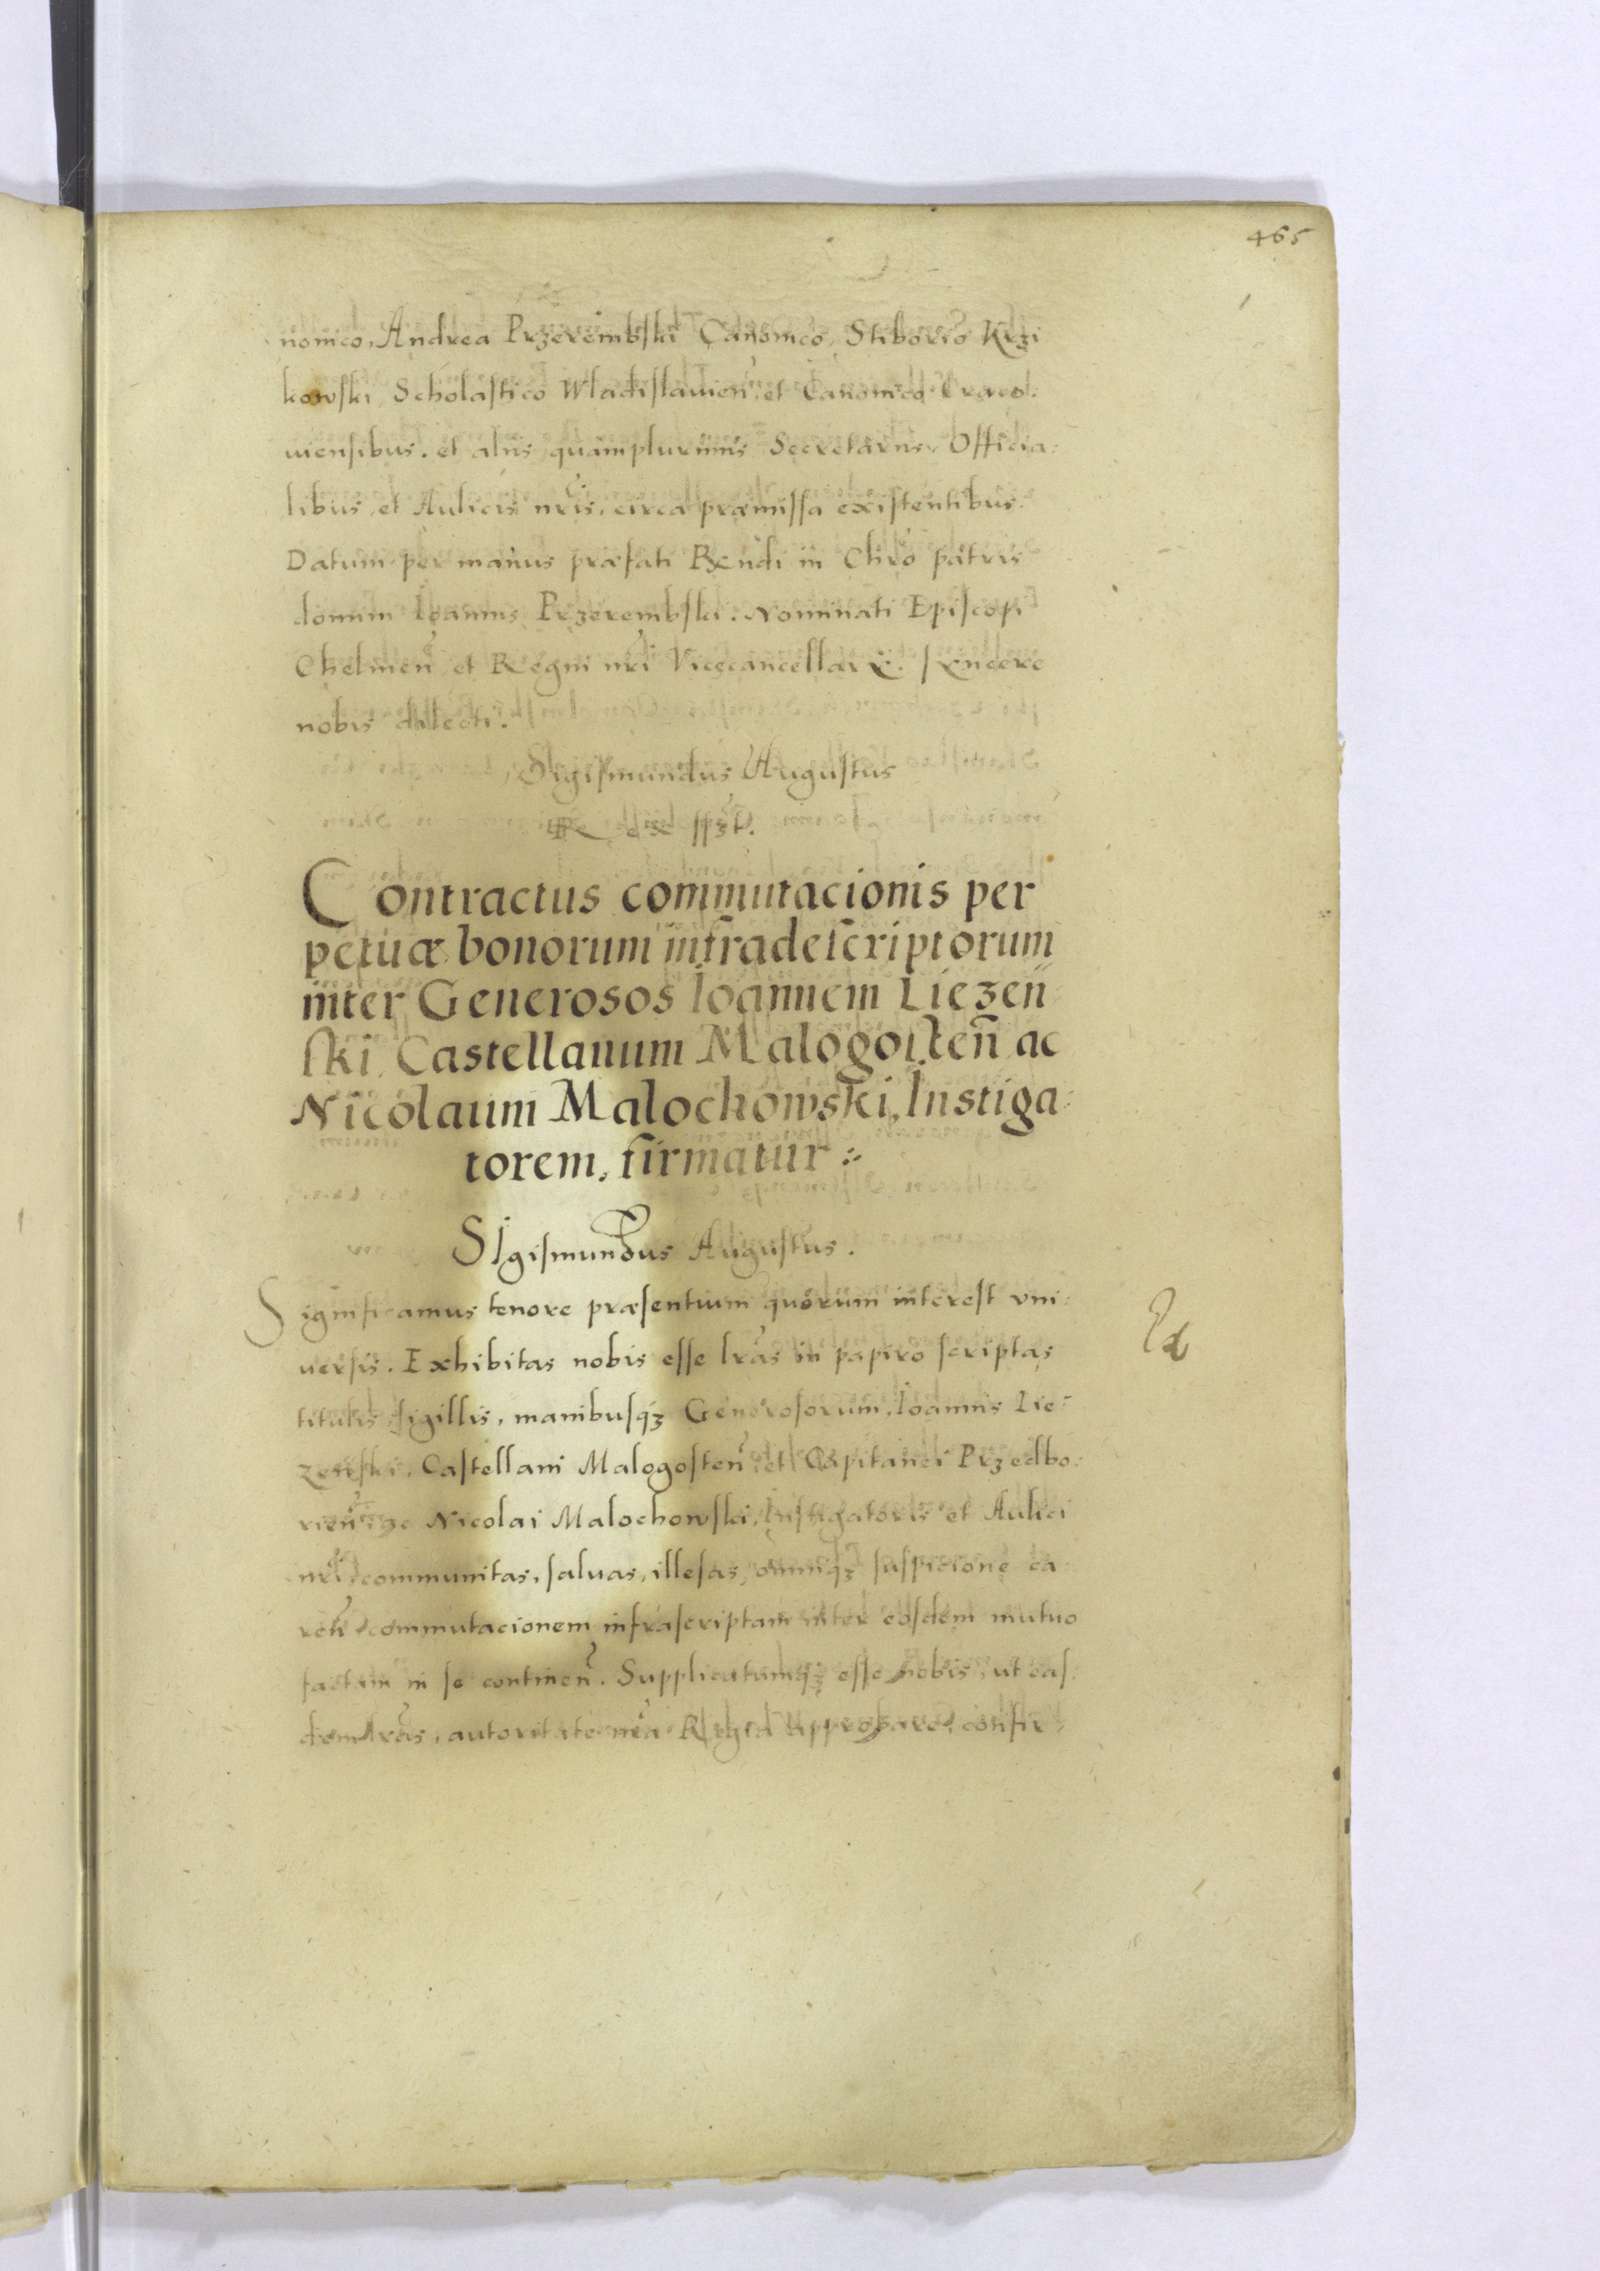 465
nonico, Andrea Przerembski Canonico, Stiborio Krzi
kowski Scholastico Wladislauien̄ et Canonico Craco:
uiensibus. et aliis quamplurimis Secretariis, Officia:
libus, et Aulicis nr̄is, circa præmissa existentibus.
Datum per manus præfati Rx̄ndi in Chr̄o patris
domini Ioannis Przerembski. Nominati Episcopi
Chelmen̄ et Regni nr̄i Vicecancellarii. syncere
nobis dilecti.
Sigismundus Augustus
Rex sspt.
Contractus commutacionis per
petuæ bonorum infradescriptorum
inter Generosos Ioannem Liezen
ski, Castellanum Malogosten̄ ac
Nicolaum Malochowski, Instiga:
torem, firmatur :
SIgismundus Augustus.
Significamus tenore præsentium quorum interest vni:
uersis. Exhibitas nobis esse lr̄as in papiro scriptas
titulis sigillis, manibusqꝫ Generosorum, Ioannis Lie:
zenski, Castellani Malogosten̄ et Capitanei Przedbo:
rien̄ ac Nicolai Malochowski, Instigatoris et Aulici
nr̄i communitas, saluas, illesas, omniqꝫ suspicione ca
ren̄ commutacionem infrascriptam inter eosdem mutuo
factam in se continen̄. Supplicatumqꝫ esse nobis, ut eas:
dem lr̄as, autoritate nr̄a Regia approbare, confir: